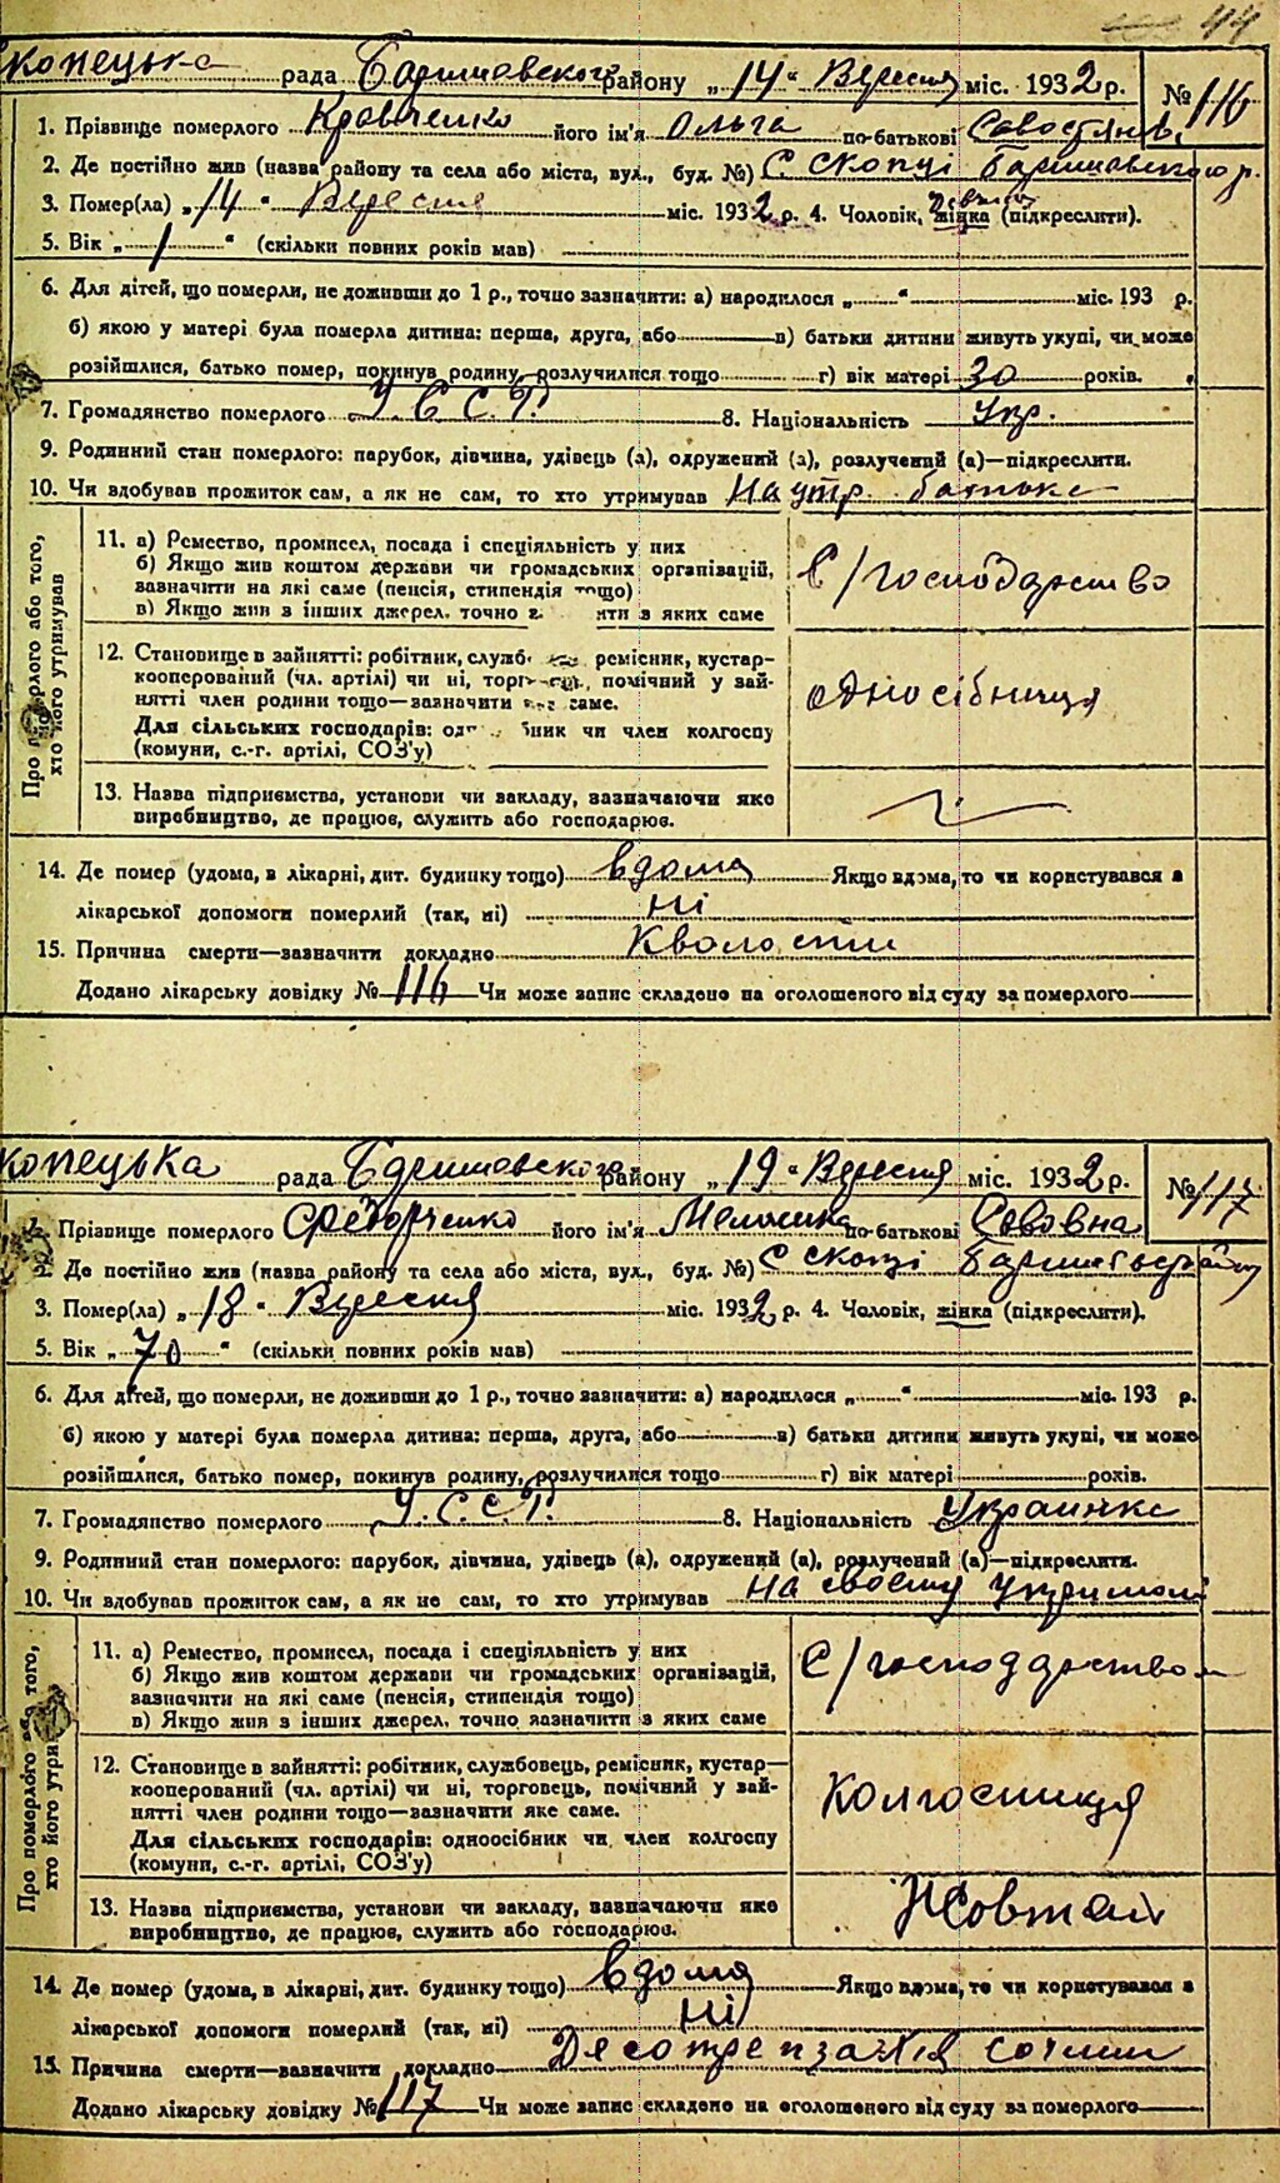 44
копецька рада Баришевского району „14“ Вересня міс. 1932 р. № 116
1. Прізвище померлого Кравченко його ім'я Ольга по-батькові
2. Де постійно жив (назва району та села або міста, вул., буд. №) С Скопці Баришевского р.
3. Помер(ла) „14“ Вересня міс. 1932 р. 4. Чоловік, жінка (підкреслити).
5. Вік „1“ (скільки повних років мав)
6. Для дітей, що померли, не доживши до 1 р., точно зазначити: а) народилося „ “ міс. 193 р.
б) якою у матері була померла дитина: перша, друга, або в) батьки дитини живуть укупі, чи може
розійшлися, батько помер, покинув родину, розлучилися тощо г) вік матері 30 років.
7. Громадянство померлого У.С.С.Р. 8. Національність Укр.
9. Родинний стан померлого: парубок, дівчина, удівець (а), одружений (а), розлучений (а)—підкреслити.
10. Чи здобував прожиток сам, а як не сам, то хто утримував На утр. батька
Про померлого або того, хто його утримував
11. а) Ремество, промисел, посада і спеціяльність у них
б) Якщо жив коштом держави чи громадських організацій,
зазначити на які саме (пенсія, стипендія тощо)
в) Якщо жив з інших джерел, точно з нти з яких саме
С/господарство
12. Становище в зайнятті: робітник, служб ремісник, кустар—
кооперований (чл. артілі) чи ні, помічний у зай-
нятті член родини тощо—зазначити саме.
Для сільських господарів: од бник чи член колгоспу
(комуни, с.-г. артілі, СОЗ'у)
односібниця
13. Назва підприємства, установи чи закладу, зазначаючи яке
виробництво, де працює, служить або господарює.
14. Де помер (удома, в лікарні, дит. будинку тощо) вдома Якщо вдома, то чи користувався з
лікарської допомоги померлий (так, ні) ні
15. Причина смерти—зазначити докладно Кволость
Додано лікарську довідку № 116 Чи може запис складено на оголошеного від суду за померлого
копецька рада Баришевского району „19“ Вересня міс. 1932 р. № 117
1. Прізвище померлого Федорченко його ім'я Меланка по-батькові Савовна
2. Де постійно жив (назва району та села або міста, вул., буд. №) С Скопці
3. Помер(ла) „18“ Вересня міс. 1932 р. 4. Чоловік, жінка (підкреслити).
5. Вік „70“ (скільки повних років мав)
6. Для дітей, що померли, не доживши до 1 р., точно зазначити: а) народилося „ “ міс. 193 р.
б) якою у матері була померла дитина: перша, друга, або в) батьки дитини живуть укупі, чи може
розійшлися, батько помер, покинув родину, розлучилися тощо г) вік матері років.
7. Громадянство померлого У.С.С.Р. 8. Національність Украинка
9. Родинний стан померлого: парубок, дівчина, удівець (а), одружений (а), розлучений (а)—підкреслити.
10. Чи здобував прожиток сам, а як не сам, то хто утримував На своему
Про померлого або того, хто його утри
11. а) Ремество, промисел, посада і спеціяльність у них
б) Якщо жив коштом держави чи громадських організацій,
зазначити на які саме (пенсія, стипендія тощо)
в) Якщо жив з інших джерел, точно зазначити з яких саме
С/господарство
12. Становище в зайнятті: робітник, службовець, ремісник, кустар—
кооперований (чл. артілі) чи ні, торговець, помічний у зай-
нятті член родини тощо—зазначити яке саме.
Для сільських господарів: одноосібник чи член колгоспу
(комуни, с.-г. артілі, СОЗ'у)
Колгоспиця
13. Назва підприємства, установи чи закладу, зазначаючи яке
виробництво, де працює, служить або господарює.
Жовтень
14. Де помер (удома, в лікарні, дит. будинку тощо) вдома Якщо вдома, то чи користувався з
лікарської допомоги померлий (так, ні) ні
15. Причина смерти—зазначити докладно
Додано лікарську довідку № 117 Чи може запис складено на оголошеного від суду за померлого